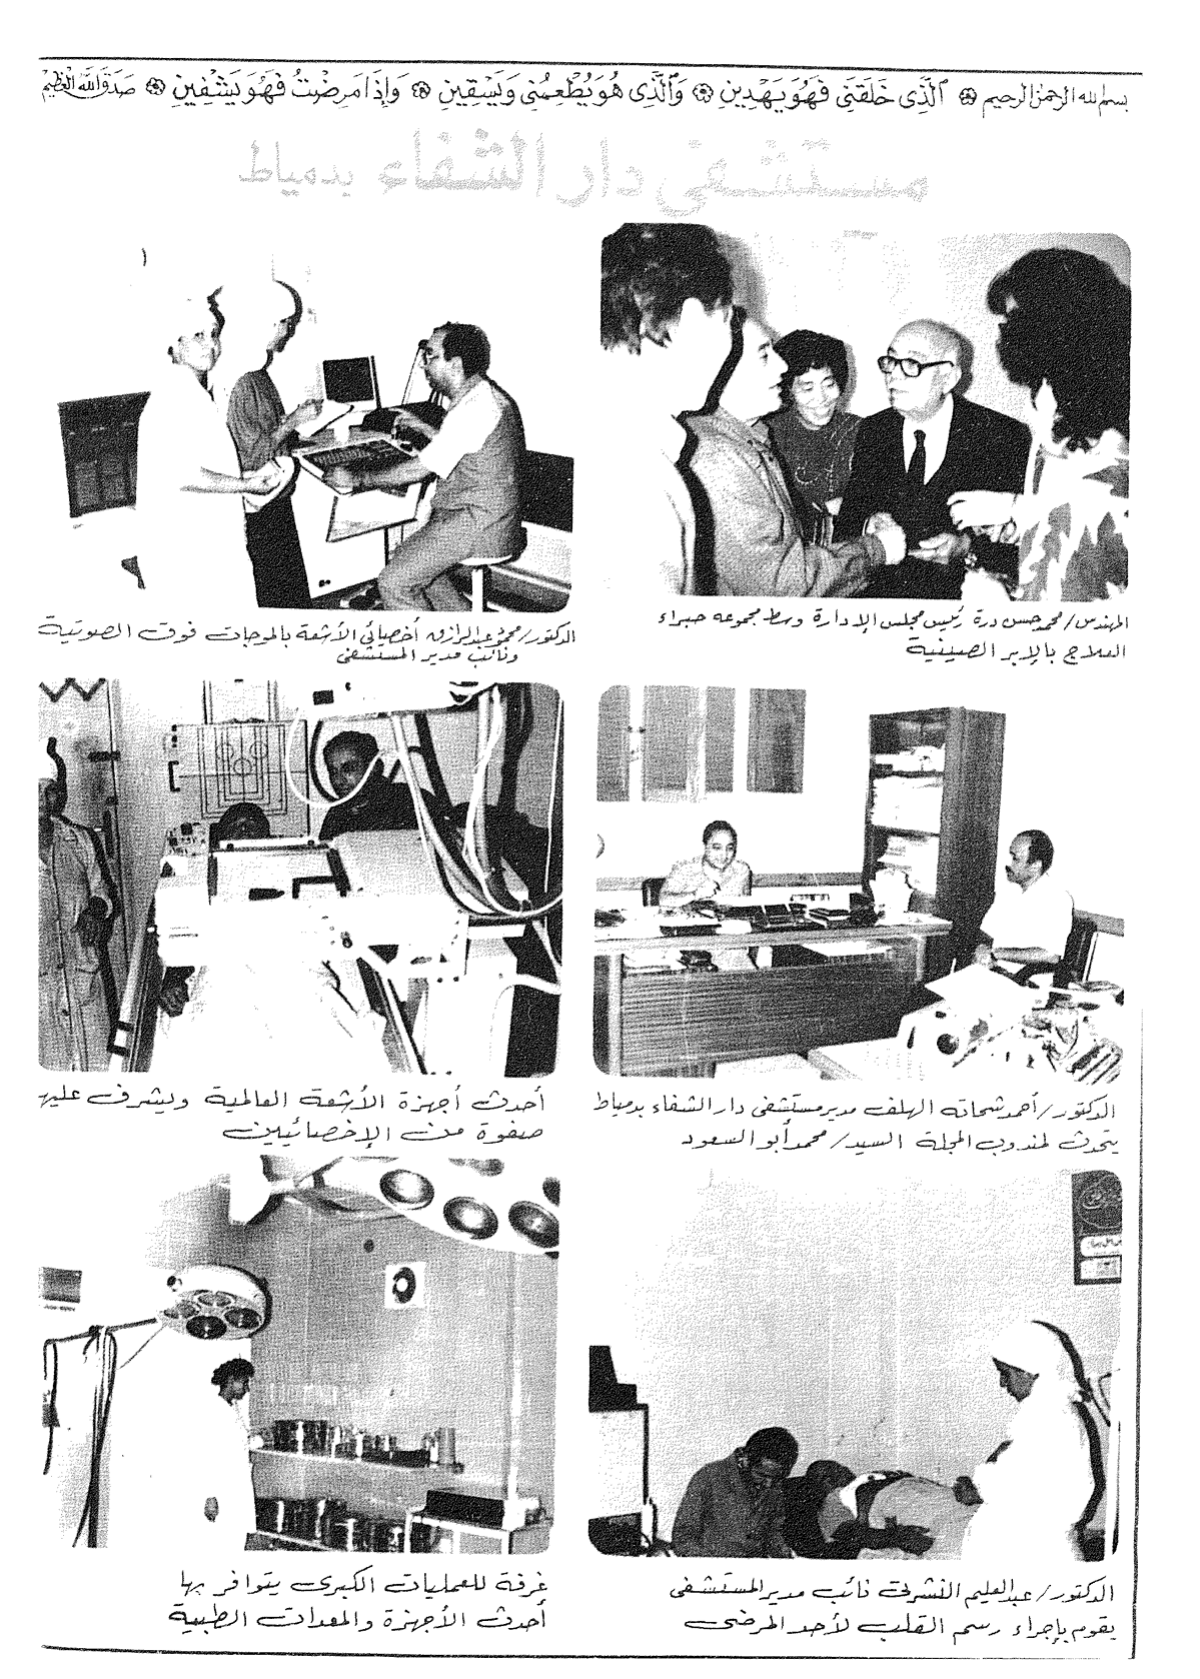 بسم الله الرحمن الرحيم ۞ ٱلَّذِى خَلَقَنِى فَهُوَ يَهْدِينِ ۞ وَٱلَّذِى هُوَ يُطْعِمُنِى وَيَسْقِينِ ۞ وَإِذَا مَرِضْتُ فَهُوَ يَشْفِينِ ۞ صَدَقَ اللَّهُ العَظِيم
مستشفى دار الشفاء بدمياط
المهندس/محمد حسن درة رئيس مجلس الإدارة وسط مجموعه خبراء
العلاج بالإبر الصينية
الدكتور/محمود عبد الرازق أخصائي الأشعة بالموجات فوق الصوتية
ونائب مدير المستشفى
الدكتور/أحمد شحاته الهلف مدير مستشفى دار الشفاء بدمياط
يتحدث لمندوب المجلة السيد/محمد أبو السعود
أحدث أجهزة الأشعة العالمية ويشرف عليها
صفوة من الإخصائيين
الدكتور/عبد العليم النشرتى نائب مدير المستشفى
يقوم بإجراء رسم القلب لأحد المرضى
غرفة للعمليات الكبرى يتوافر بها
أحدث الأجهزة والمعدات الطبية